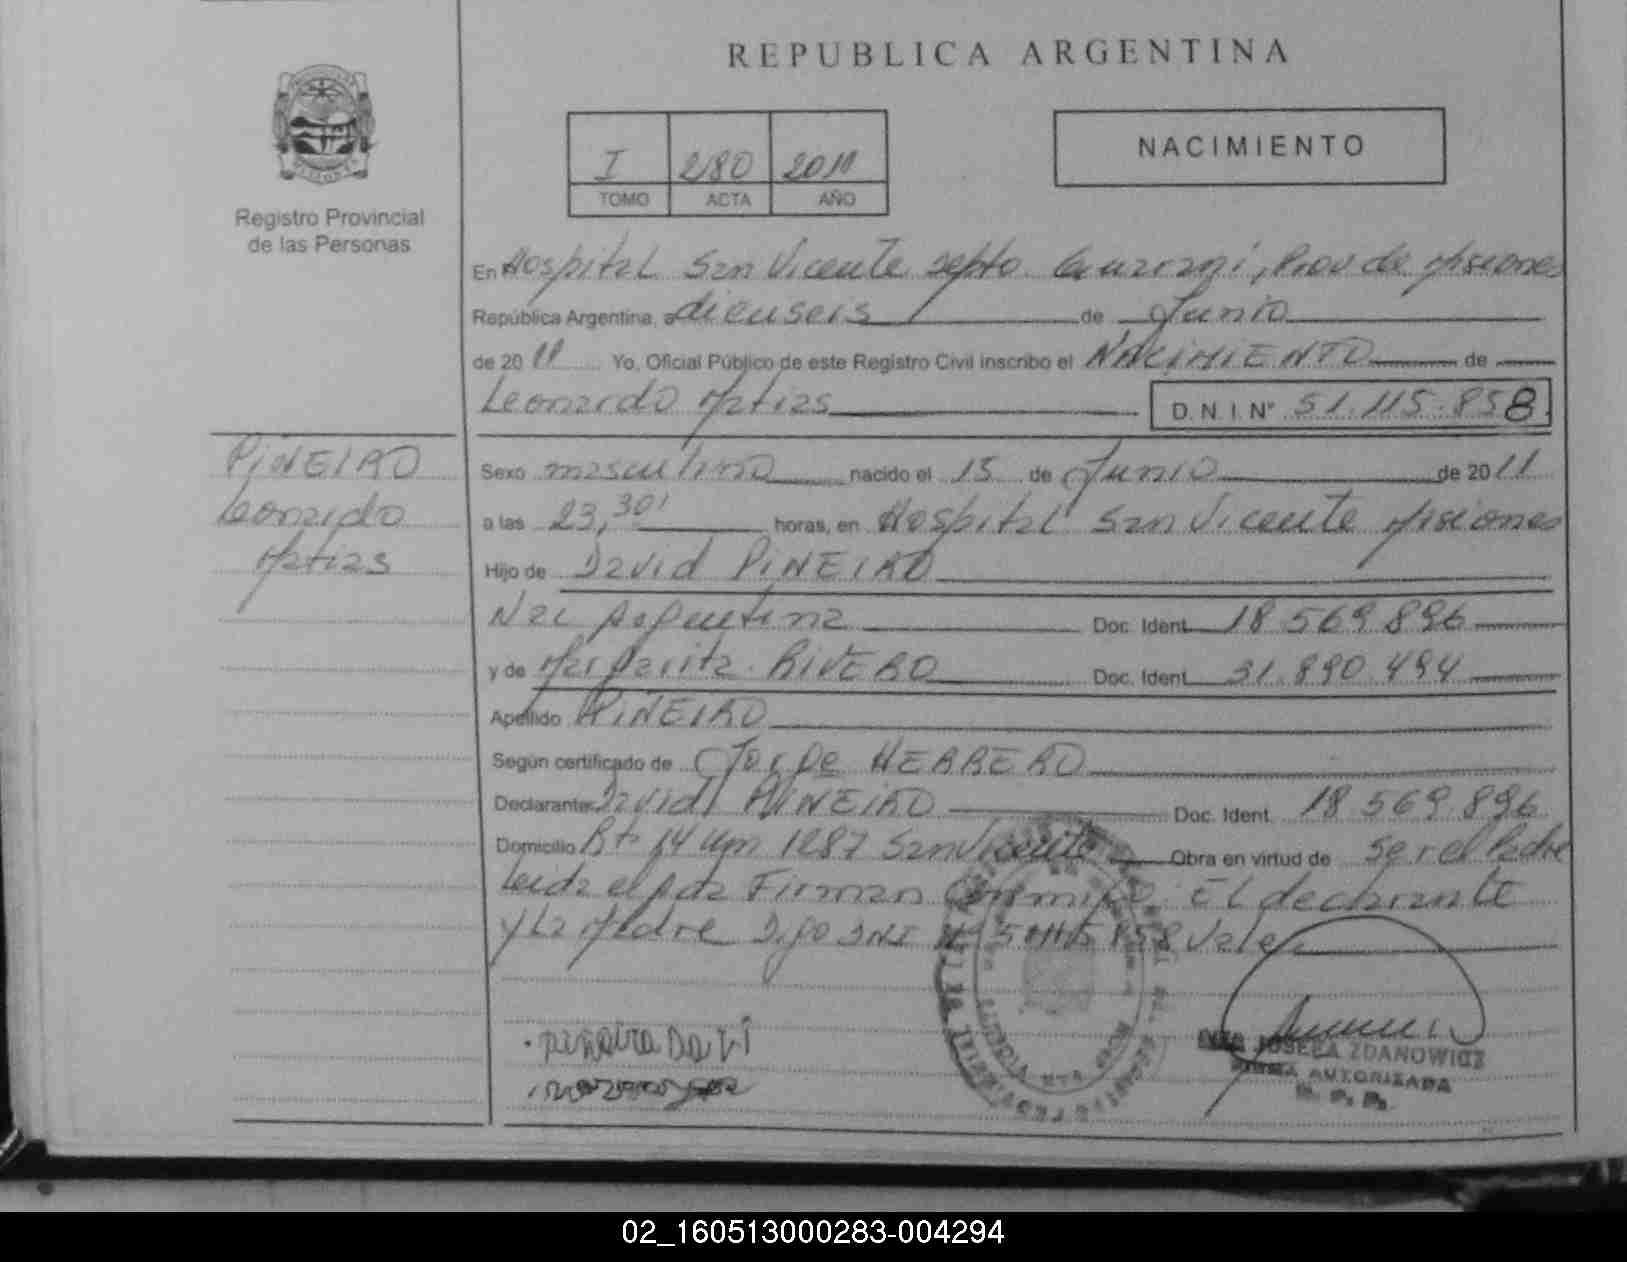 REPUBLICA ARGENTINA
NACIMIENTO
I 280 2011
TOMO ACTA AÑO
Registro Provincial
de las Personas
En Hospital San Vicente Depto Guarani, Prov de Misiones
República Argentina, a dieciseis de Junio
de 2011 Yo, Oficial Público de este Registro Civil inscribo el NACIMIENTO de
Leonardo Matias D.N.I.Nº 51.115.858
PIÑEIRO
Leonardo
Matias
Sexo masculino nacido el 15 de Junio de 2011
a las 23,30' horas, en Hospital San Vicente Misiones
Hijo de David PIÑEIRO
Nac Argentina Doc. Ident. 18.569.896
y de Margarita RIVERO Doc. Ident. 31.890.494
Apellido PIÑEIRO
Según certificado de Jorge HERRERO
Declarante David PIÑEIRO Doc. Ident. 18.569.896
Domicilio Rta 14 Km 1287 San Vicente Obra en virtud de ser el Padre
Leida el acta Firman Conmigo El declarante
y La Madre Digo DNI Nº 51115858 Vale
JOSEFA ZDANOWICZ
FIRMA AUTORIZADA
R. P. P.
02_160513000283-004294